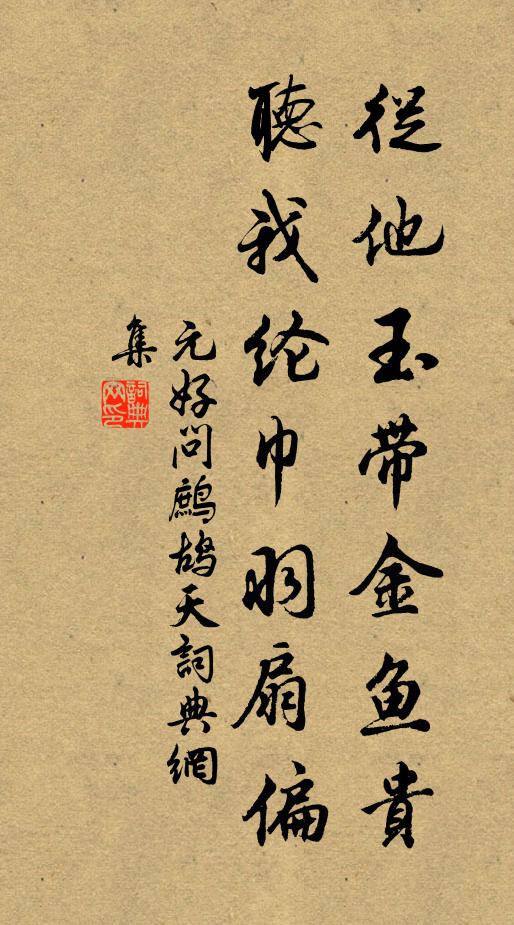 從他玉带金鱼貴
聽我纶巾羽扇偏
元好问鷓鴣天詞典網
集
詞典網印